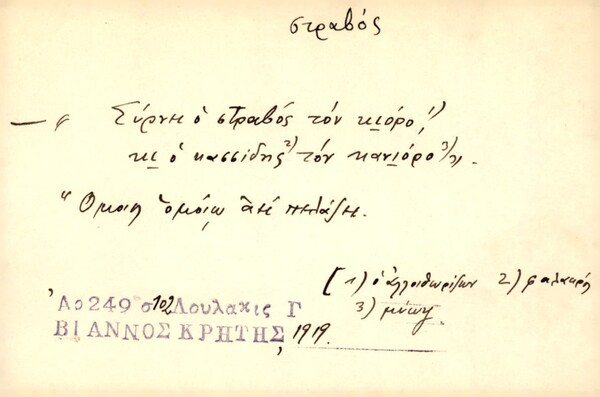 στραβός
— " Σύρνει ὁ στραβός τόν κιόρο 1)
κι ὁ κασσίδης 2) τόν κανιόρο 3) ".
" Ὅμοιος ὁμοίῳ ἀεί πελάζει.
[1) ὁ ἀλλοιθωρίζων 2) φαλακρός
3) μύωψ
Ἀρ 249 σ 102 Λουλακις Γ
ΒΙΑΝΝΟΣ ΚΡΗΤΗΣ, 1919.